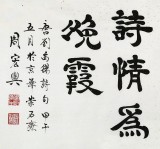 詩情為
晚霞
唐劉禹錫詩句甲午
五月於京華崇石齋
周宏興